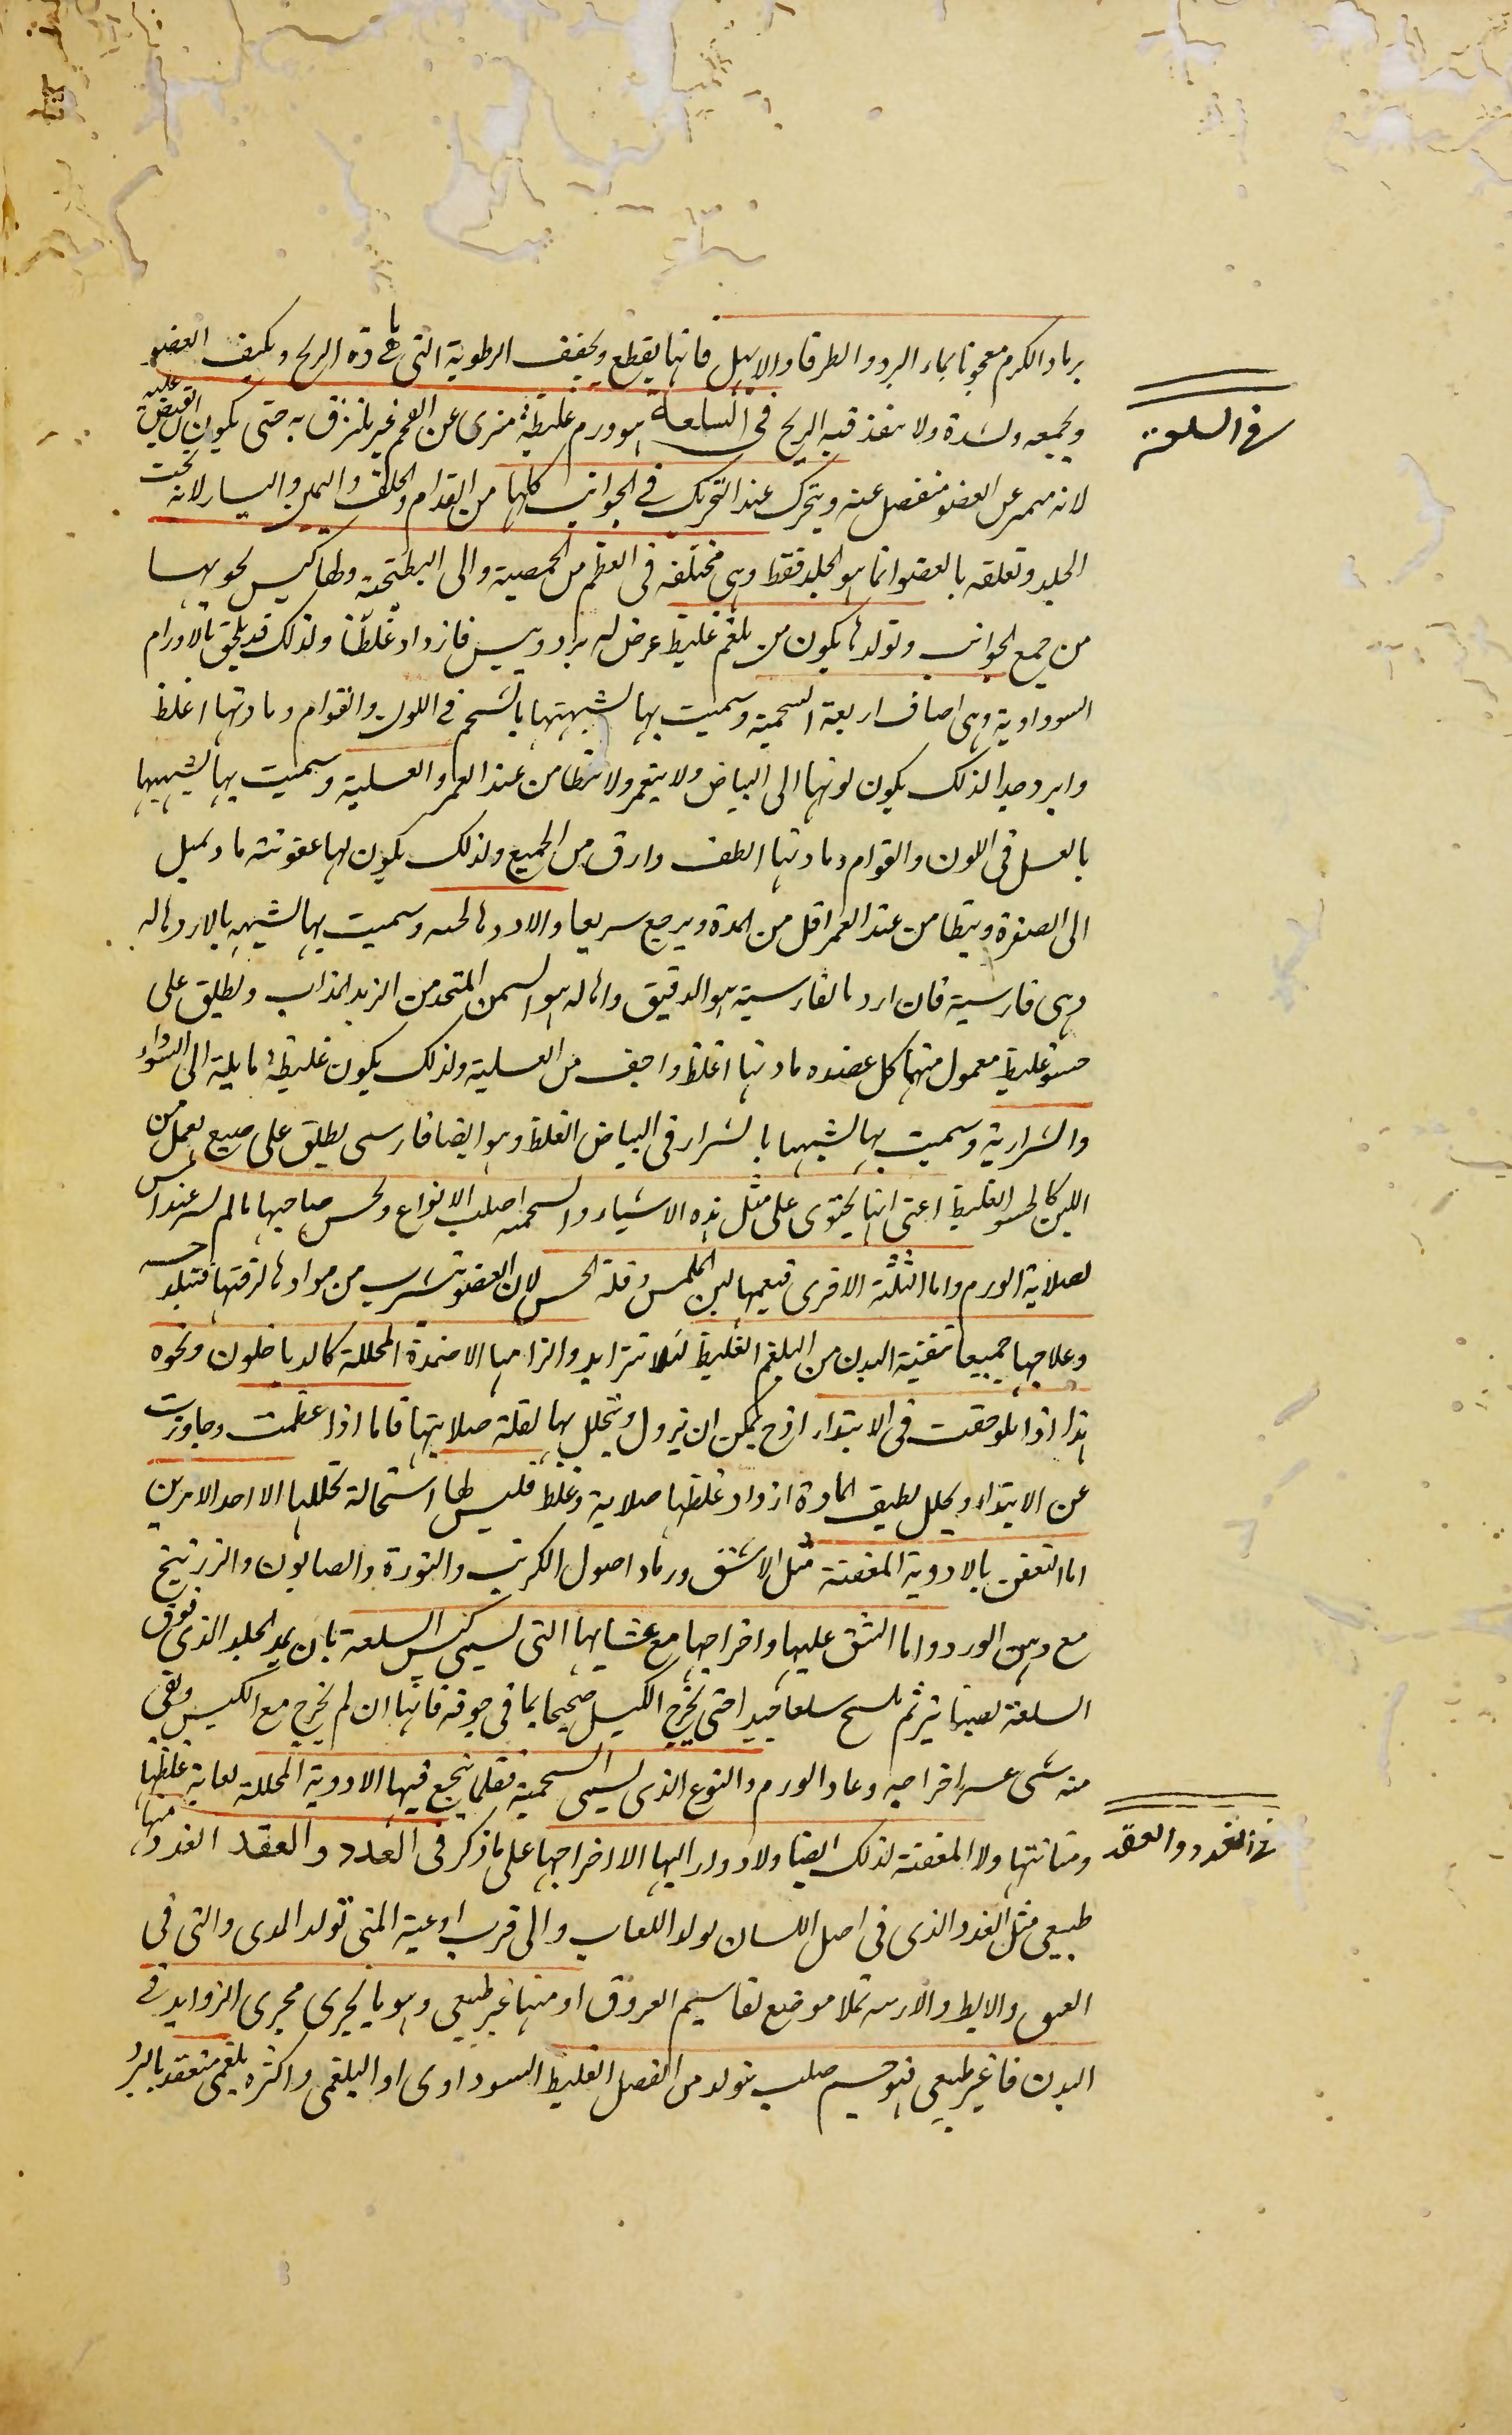 برماد الكرم معجونا بماء البرد والطرفا والابهل فانها يقطع ويجفف الرطوبة التى هى مادة الريح ويكثف العضو
ويجمعه ويشدة ولا ينفذ فيه الريح فى السلعة هو ورم غليظة متبرى عن اللحم غير ملتزق به حتى يكون القبض عليه
لانه متميز عن العضو منفصل عنه ويتحرك عند التحريك فى الجوانب كلها من القدام والخلف واليمين واليسار لانه تحت
الجلد وتعلقه بالعضو انما هو الجلد فقط وهى مختلفه فى العظم من الحمصية والى البطيخة ولها كيس يحويها
من جميع الجوانب وتولدها يكون من بلغم غليظ عرض له برد ويبس فازداد غلظا ولذلك قد يلحق بالاورام
السوداوية وهى اصناف اربعة الشحمية وسميت بها لشبهتها بالشحم فى اللون والقوام ومادتها اغلظ
وابرد جدا لذلك يكون لونها الى البياض ولا ينغمر ولا يتطامن عند الغمز والعسلية وسميت بها لشبهها
بالعسل فى اللون والقوام ومادتها الطف وارق من الجميع ولذلك يكون لها عفونته ما ويميل
الى الصفرة ويتطامن عند الغمز اقل من المدة ويرجع سريعا والاردهالجيه وسميت بها لشبهه بالاردهاله
وهى فارسية فان ارد بالفارسية هو الدقيق وهاله هو السمن المتخذ من الزبد المذاب ويطلق على
حسو غليظ معمول منهما كل عضده مادتها اغلظ واجف من العسلية ولذلك يكون غليظة مايلة الى السواد
والشرارية وسميت بها لشبهها بالشرار فى البياض الغلظ وهو ايضا فارسى يطلق على صبغ يعمل من
اللبن كالحسو الغليظ اعنى انها يحتوى على مثل هذه الاشياء والشحمية اصلب الانواع ويحس صاحبها بالم يسير عند اللمس
لصلابة الورم واما الثلثة الاخرى فيعمها لين الملمس وقلة الحس لان العضو يتشرب من موادها لرقتها فيتبلد حسه
وعلاجها جميعا تنقية البدن من البلغم الغليظ لئلا تتزايد والزامها الاضمدة المحللة كالدياخلون ونحوه
هذا اذا لموحقت فى الابتداء اذح يمكن ان يزول ويتحلل بها لقلة صلابتها فاما اذا عظمت وجاوزت
عن الابتداء ويحلل لطيف المادة ازداد غلظها صلابة وغلظ فليس لها استحالة تحللها الا احد الامرين
اما التعفن بالادوية المعفنة مثل الاشق ورماد اصول الكرنب والنورة والصابون والزرنيخ
مع دهن الورد واما الشق عليها واخراجها مع غشايها التى يسمى كيس السلعة بان يمد الجلد الذى فوق
السلعة بصنارتين ثم يسلخ سلعا جيدا حتى يخرج الكيس صحيحا بما فى جوفه فانها ان لم يخرج مع الكيس وبقى
منه شى عسر اخراجه وعاد الورم والنوع الذى يسمى الشحمية فقلما ينجع فيها الادوية المحللة لغاية غلظها
ومتانتها ولا المعفنة لذلك ايضا ولا دواء اليها الا اخراجها على ما ذكر فى الغدد والعقد الغدد منها
طبيعى مثل الغدد الذى فى اصل اللسان لولد اللعاب والى قرب اوعية المنى تولد المذى والتى فى
العنق والابط والاربيه تملا موضع تقاسيم العروق او منها غير طبيعى وهو ما يجرى مجرى الزوايد فى
البدن فا غير طبيعى فهو جسم صلب يتولد من الفضل الغليظ السوداوى او البلغمى واكثره بلغمى منعقد بالبرد
فى السلعة
فى الغدد والعقد